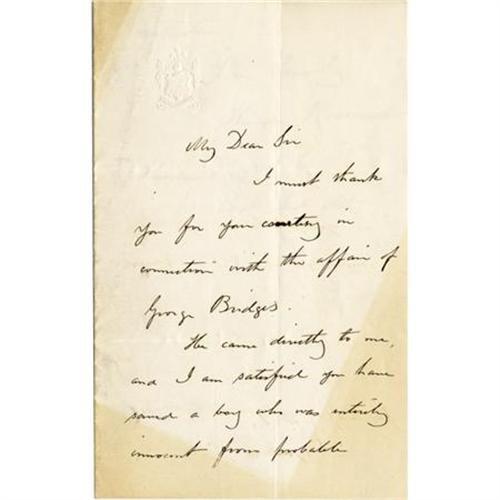 My Dear Sir
I must thank
you for your courtesy in
connection with the affair of
George Bridges.
He came directly to me,
and I am satisfied you have
saved a boy who was entirely
innocent from probable